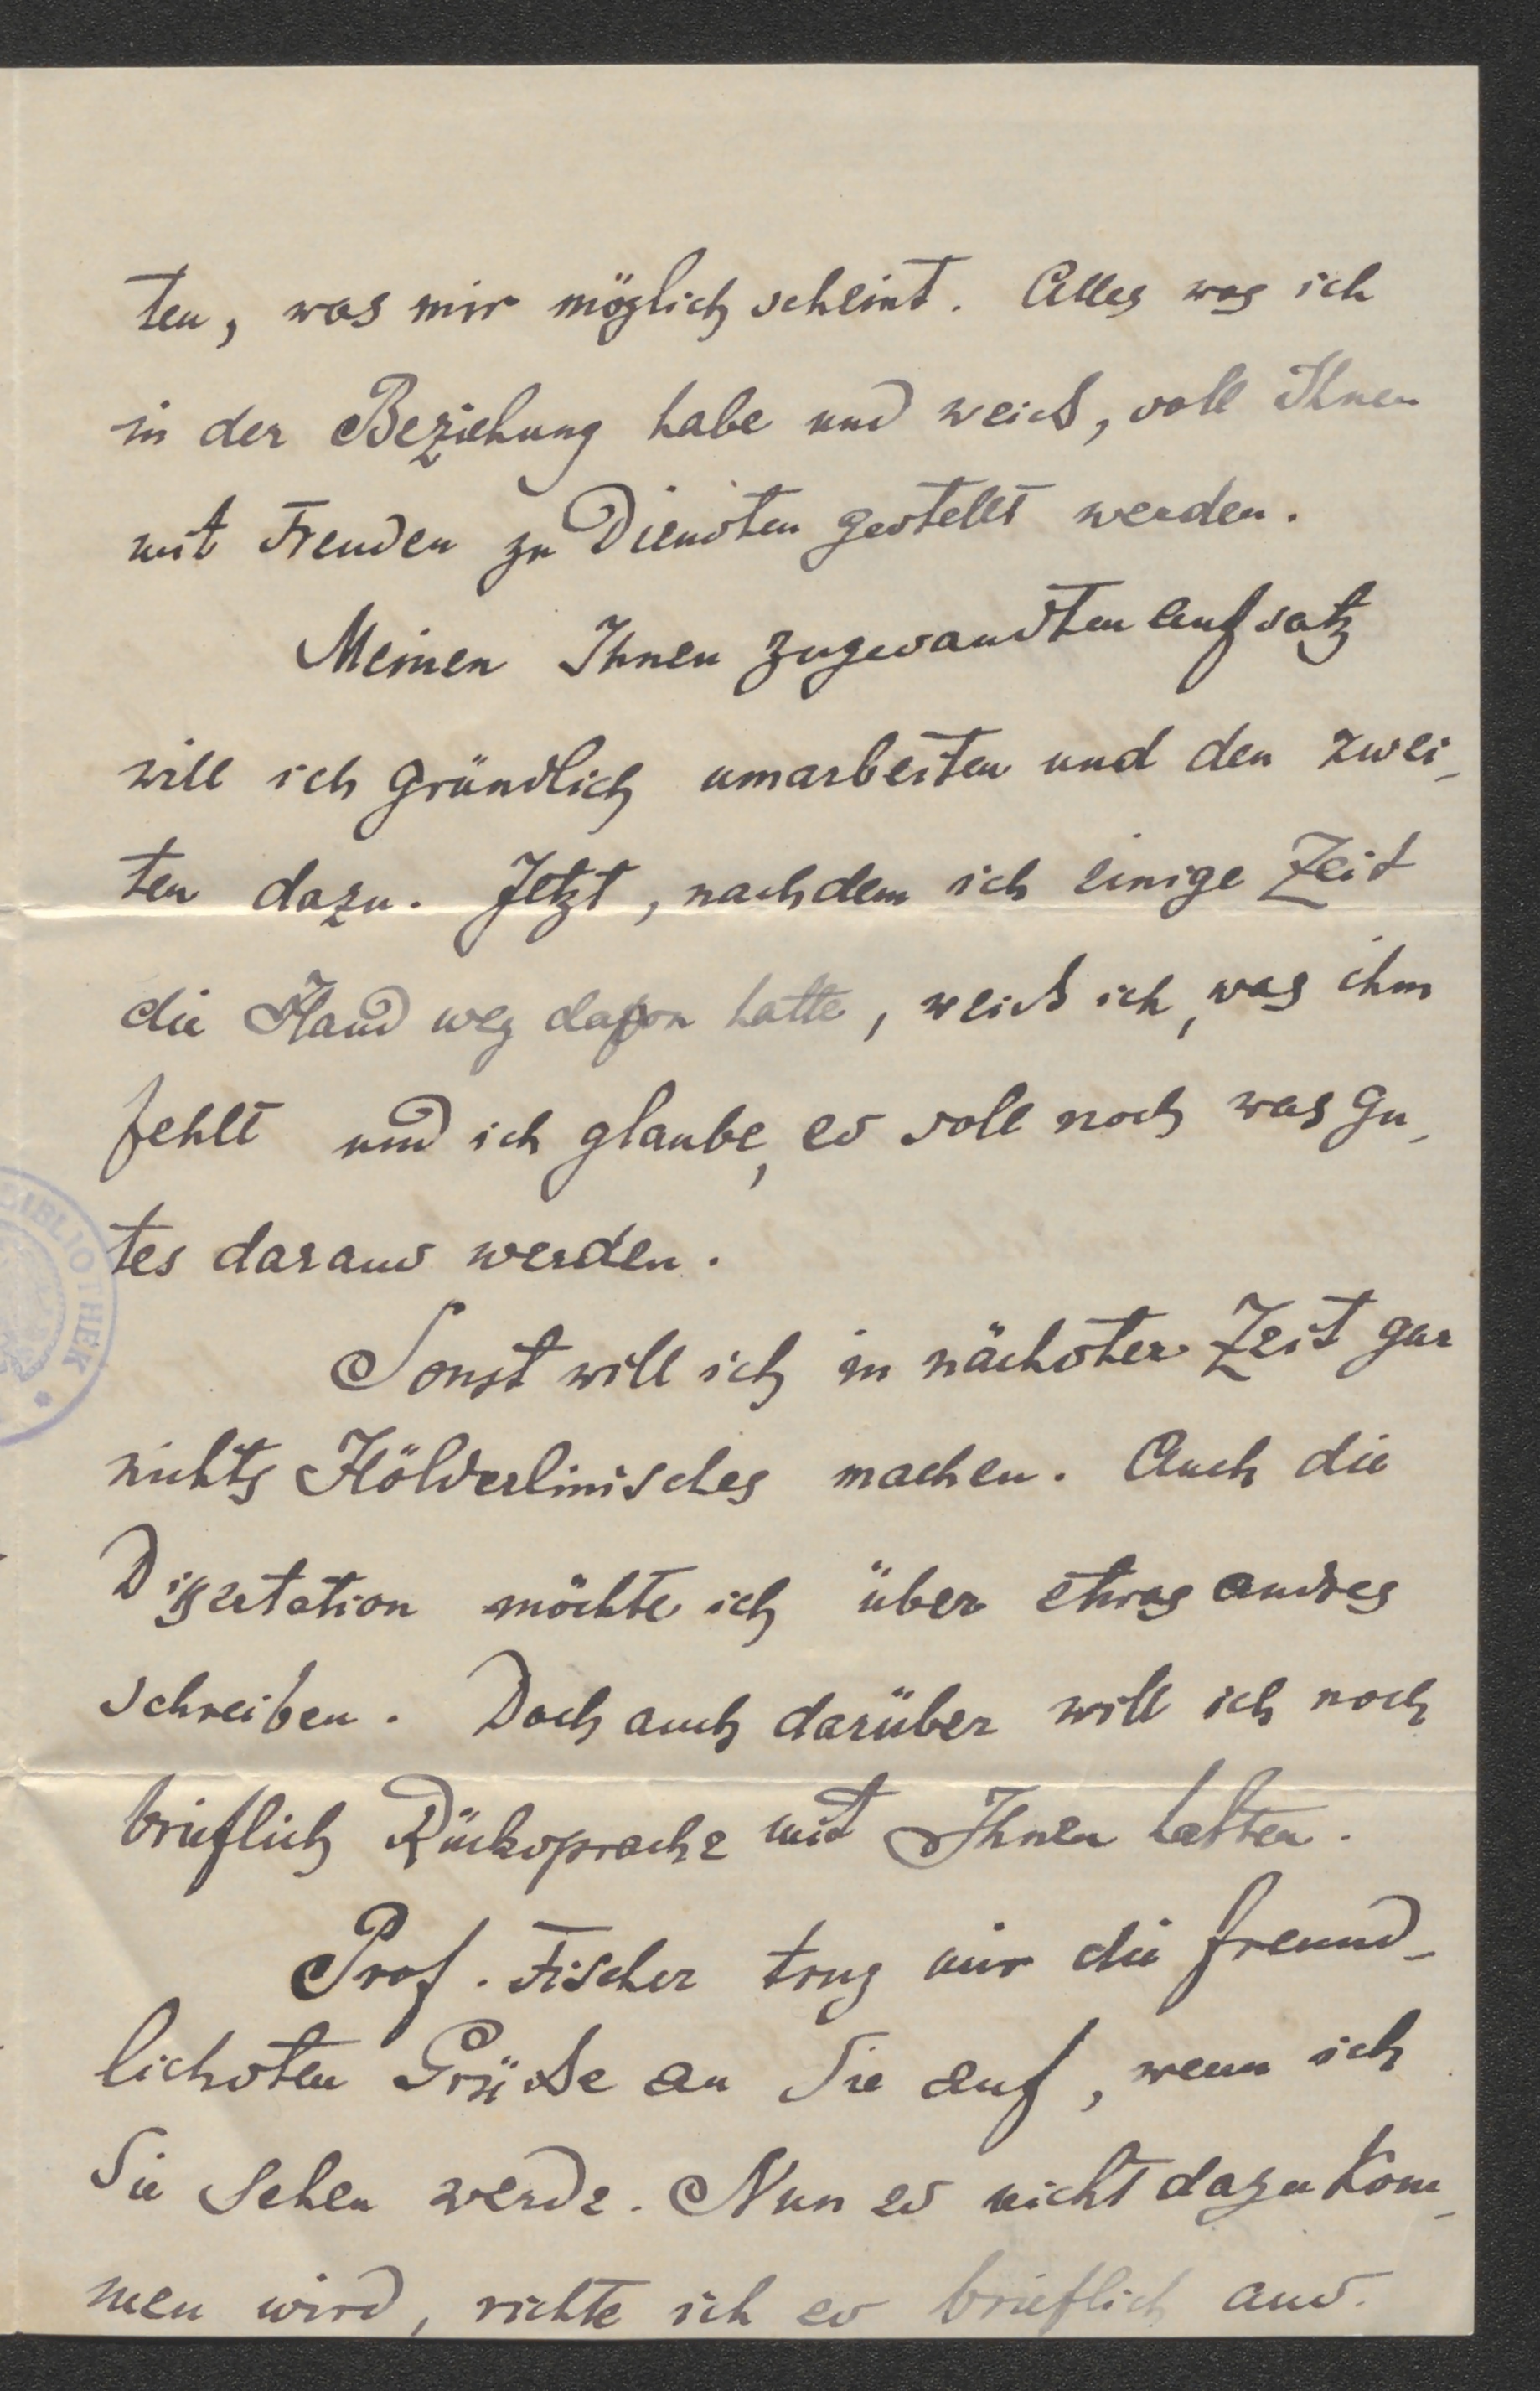 ten, was mir möglich scheint. Alles was ich
in der Beziehung habe und weiß, soll Ihnen
mit Freuden zu Diensten gestellt werden.
Meinen Ihnen zugesandten Aufsatz
will ich gründlich umarbeiten und den zwei-
ten dazu. Jetzt, nachdem ich einige Zeit
die Hand weg davon hatte, weiß ich, was ihm
fehlt und ich glaube, es soll noch was Gu-
tes daraus werden.
BIBLIOTHEK
Sonst will ich in nächster Zeit gar
nichts Hölderlinisches machen. Auch die
Dissertation möchte ich über etwas andres
schreiben. Doch auch darüber will ich noch
brieflich Rücksprache mit Ihnen halten.
Prof. Fischer trug mir die freund-
lichsten Grüße an Sie auf, wenn ich
Sie sehen werde. Nun es nicht dazu kom-
men wird, richte ich es brieflich aus.